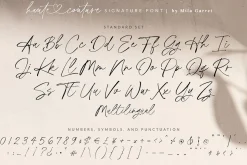 haute couture SIGNATURE FONT | by Mila Garret
STANDARD SET
Aa Bb Cc Dd Ee Ff Gg Hh Ii
Jj Kk Ll Mm Nn Oo Pp Qq Rr
Ss Tt Uu Vv Ww Xx Yy Zz
Multilingual
NUMBERS, SYMBOLS, AND PUNCTUATION
0123456789